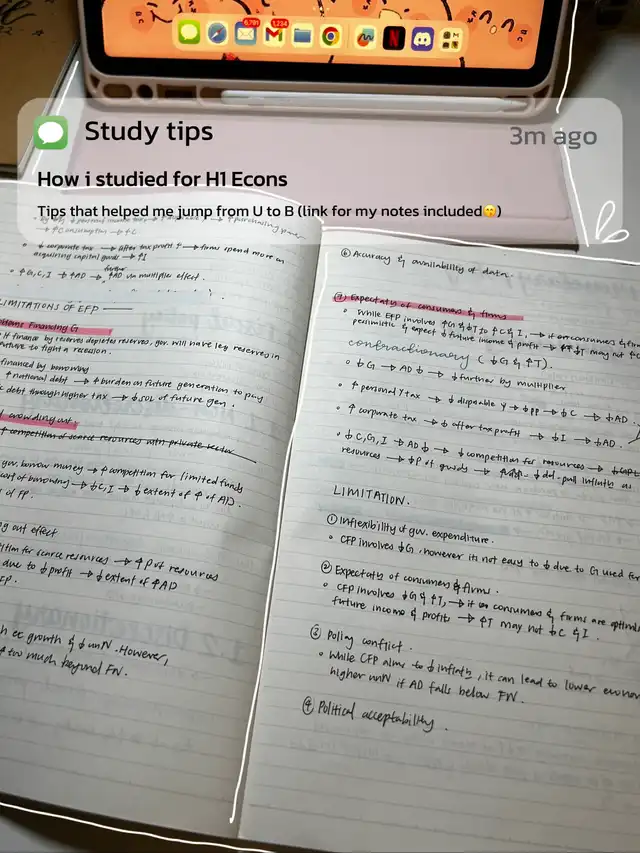 6,791
1,234
Study tips
3m ago
How i studied for H1 Econs
Tips that helped me jump from U to B (link for my notes included😙)
purchasing power
→ ↑ consumption → ↑C
• ↓ corporate tax → after tax profit ↑ → firms spend more on
acquiring capital goods → ↑I
further
• ↑G,C,I → ↑AD → ↑AD via multiplier effect.
LIMITATIONS OF EFP
Financing G
If finance by reserves depletes reserves, gov. will have less reserves in
future to fight a recession.
financed by borrowing
↑ national debt → ↑ burden on future generation to pay
debt through higher tax → ↓ SOL of future gen.
crowding out
↑ competition of scarce resources with private sector
gov. borrow money → ↑ competition for limited funds
cost of borrowing → ↓C, I → ↓ extent of ↑ of AD.
of FP.
out effect
for scarce resources → ↑P of resources
due to ↓ profit → ↓ extent of ↑AD
growth & ↓ unN. However,
too much beyond FN.
⑥ Accuracy & availability of data.
⑦ Expectatn of consumers & firms
• While EFP involves ↑G & ↓T to ↑C & I, → if consumers & firms
pessimistic & expect ↓ future income & profit → ↓T may not ↑C
contractionary (↓G & ↑T).
• ↓G → AD ↓ → ↓ further by multiplier
• ↑ personal Y tax → ↓ disposable Y → ↓ PP → ↓C → ↓AD.
• ↑ corporate tax → ↓ after tax profit → ↓I → ↓AD.
• ↓C,G,I → AD ↓ → ↓ competition for resources →
resources → ↓P of goods → ↓ dd-pull infln
LIMITATION.
① Inflexibility of gov. expenditure.
• CFP involves ↓G, however its not easy to ↓ due to G used for
② Expectatn of consumers & firms.
• CFP involves ↓G & ↑T, → if consumers & firms are
future income & profits → ↑T may not ↓C & I.
③ Policy conflict.
• While CFP aims to ↓ infltn, it can lead to lower
higher unN if AD falls below FN.
④ Political acceptability.